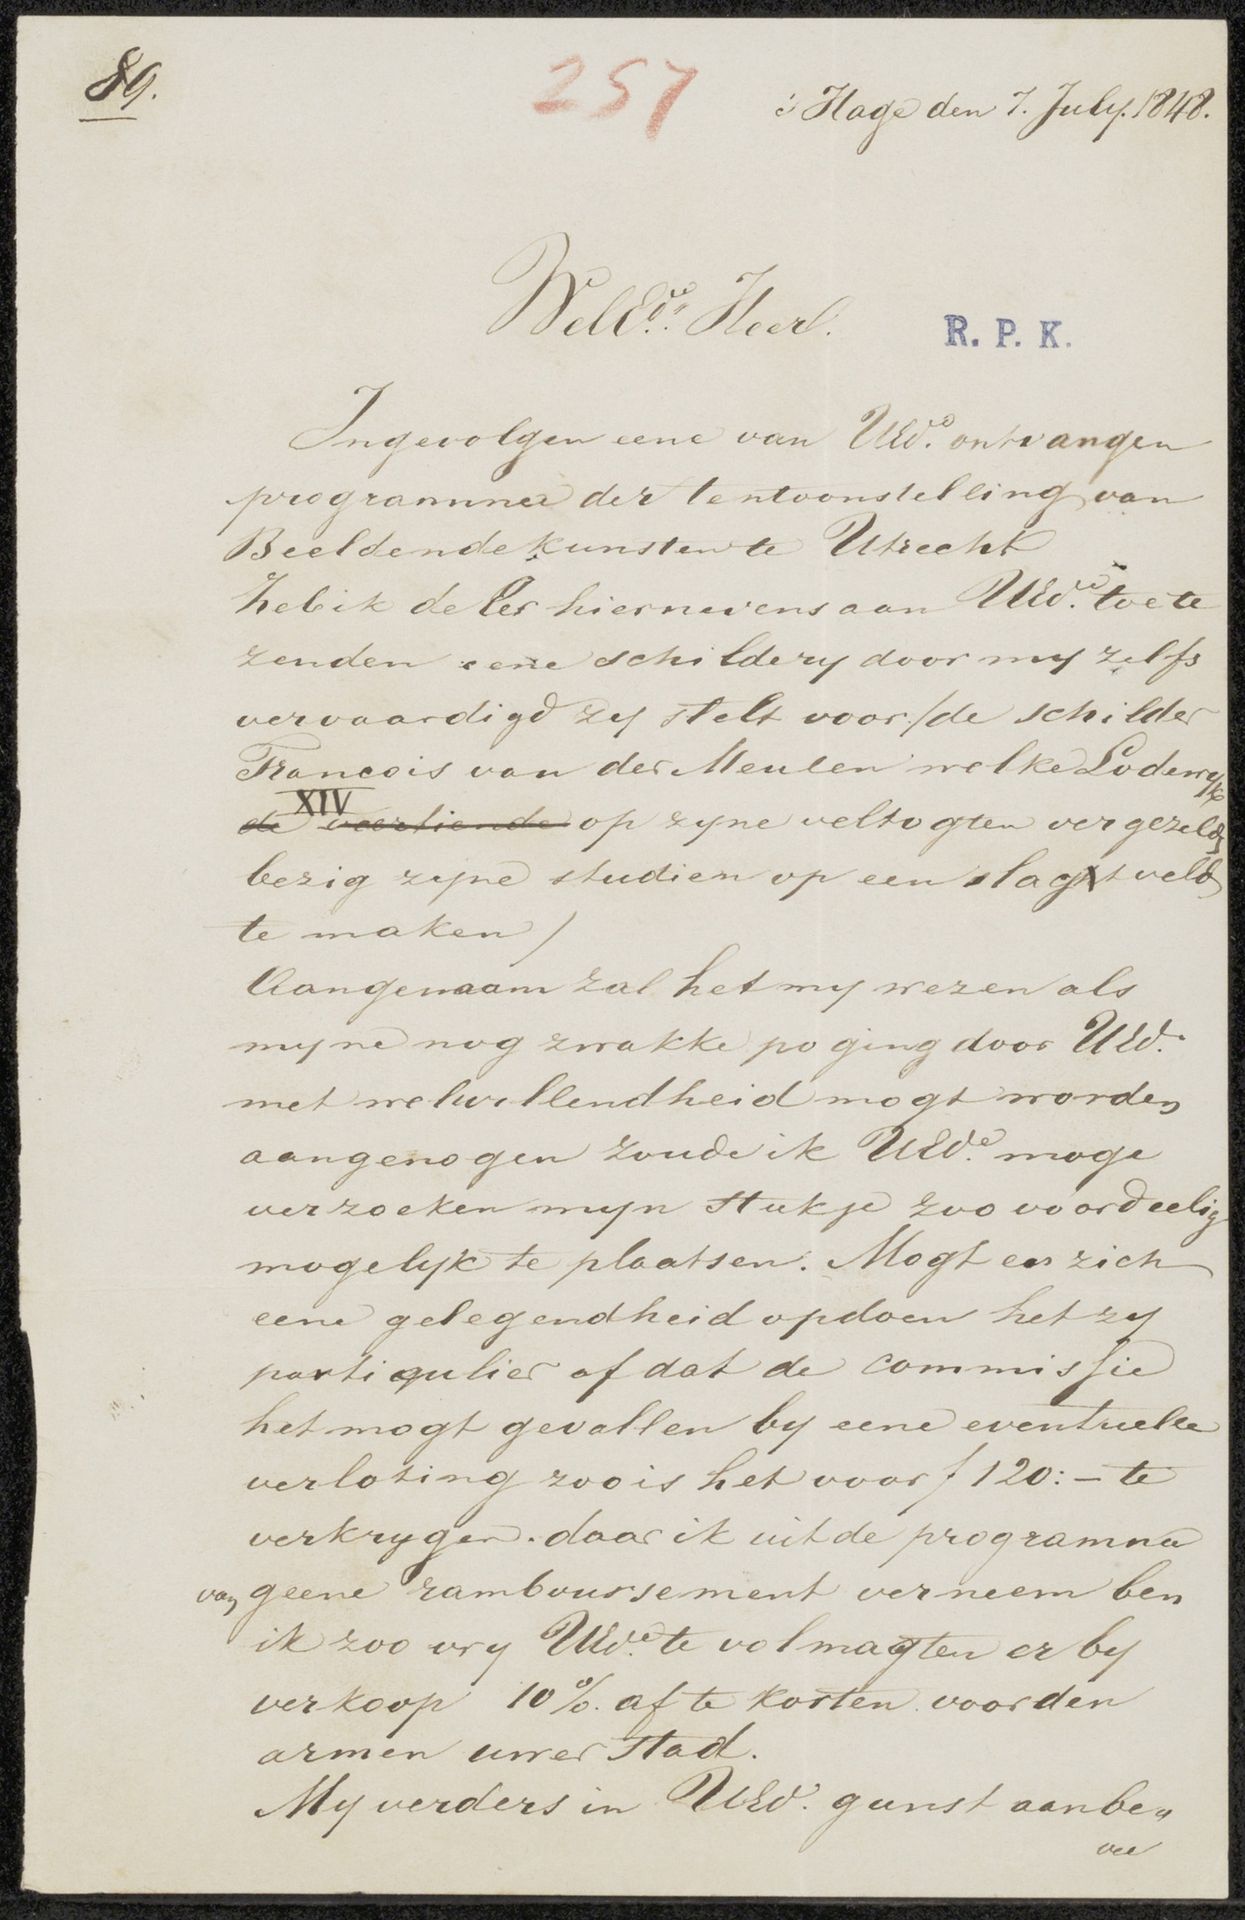 89.
257
's Hage den 7. July. 1848.
WelEd.e Heer.
R. P. K.
Ingevolgen eene van UEd.e ontvangen
programma der tentoonstelling van
Beeldende kunsten te Utrecht
heb ik de Eer hiernevens aan UEd.e toe te
zenden eene schildery door my zelfs
vervaardigd zy stelt voor /de schilder
Francois van der Meulen welke Lodewyk
XIV
de veertiende op zyne veltogten vergezeld,
bezig zyne studien op een slagtveld
te maken/
Aangenaam zal het my wezen als
myne nog zwakke poging door UEd.
met welwillendheid mogt worden
aangenogen zoude ik UEd.e moge
verzoeken myn stukje zoo voordeelig
mogelyk te plaatsen. Mogt er zich
eene gelegendheid opdoen het zy
partiqulier of dat de commissie
het mogt gevallen by eene eventuelle
verloting zoo is het voor f 120:- te
verkrygen. daar ik uit de programma
van geene ramboursement verneem ben
ik zoo vry UEd.e te volmagten er by
verkoop 10%. af te korten voor den
armen uwer stad.
My verders in UEd. gunst aanbe„
vee